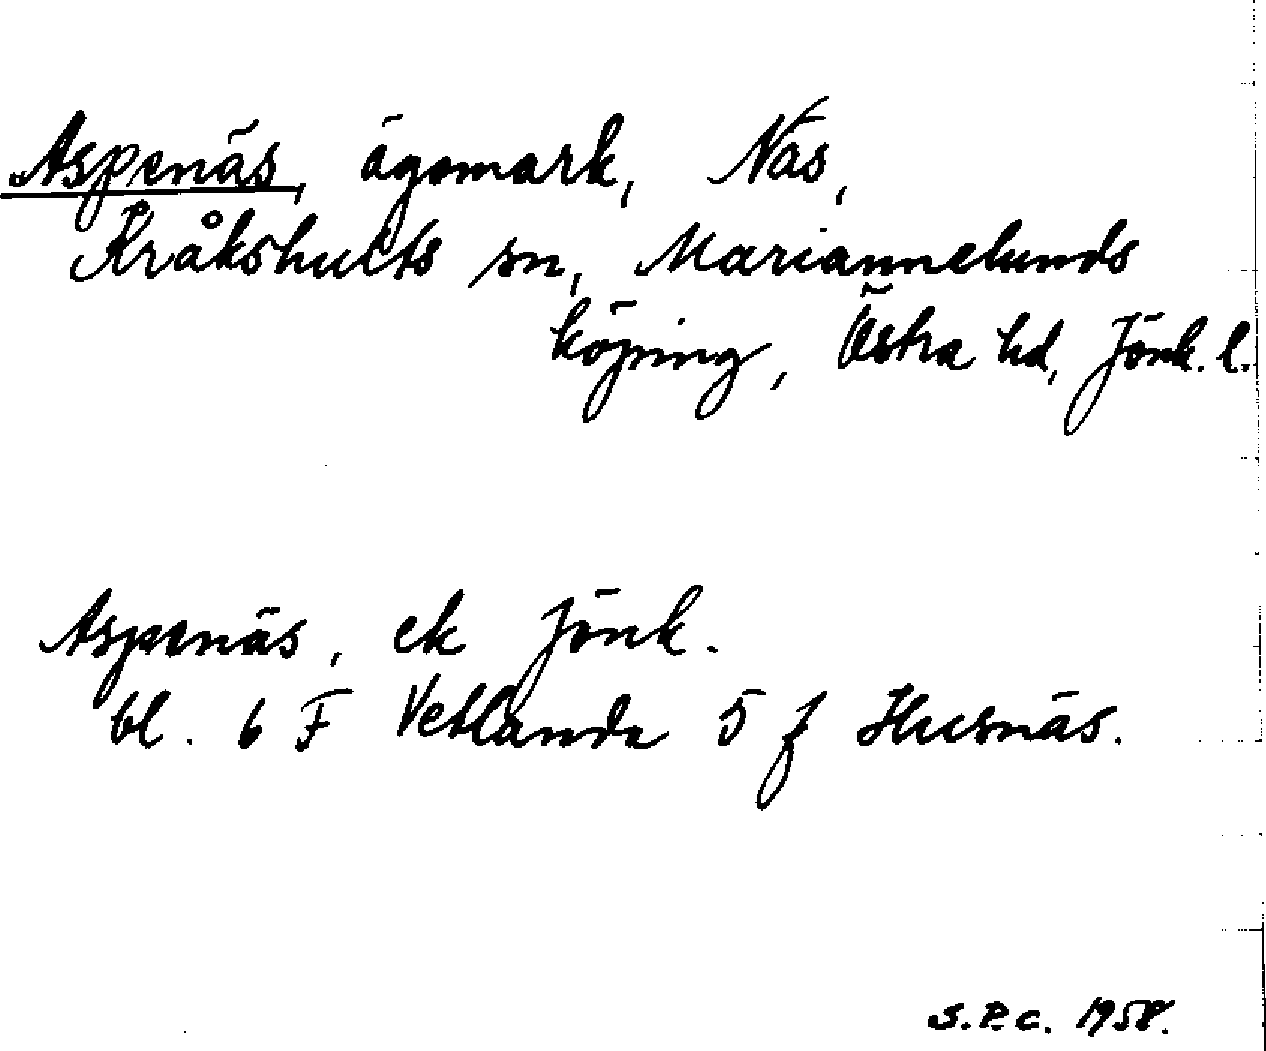 Aspenäs, ägomark, Näs,
Kråkshults sn, Mariannelunds
köping, Östra hd, Jönk. l.
Aspenäs, ek Jönk.
bl. 6 F Vetlanda 5 f Husnäs.
S.P.C. 1958.